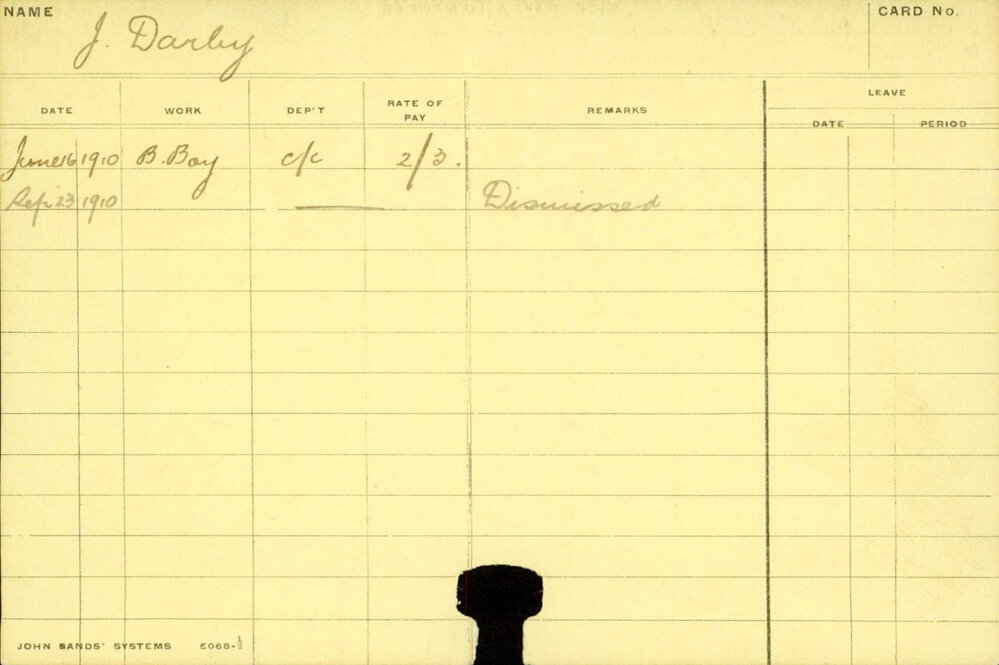 NAME J. Darby CARD No.
LEAVE
DATE WORK DEP'T RATE OF PAY REMARKS DATE PERIOD
June 16 1910 B. Boy c/c 2/3.
Sep. 23 1910 Dismissed
JOHN SANDS' SYSTEMS 5068-½